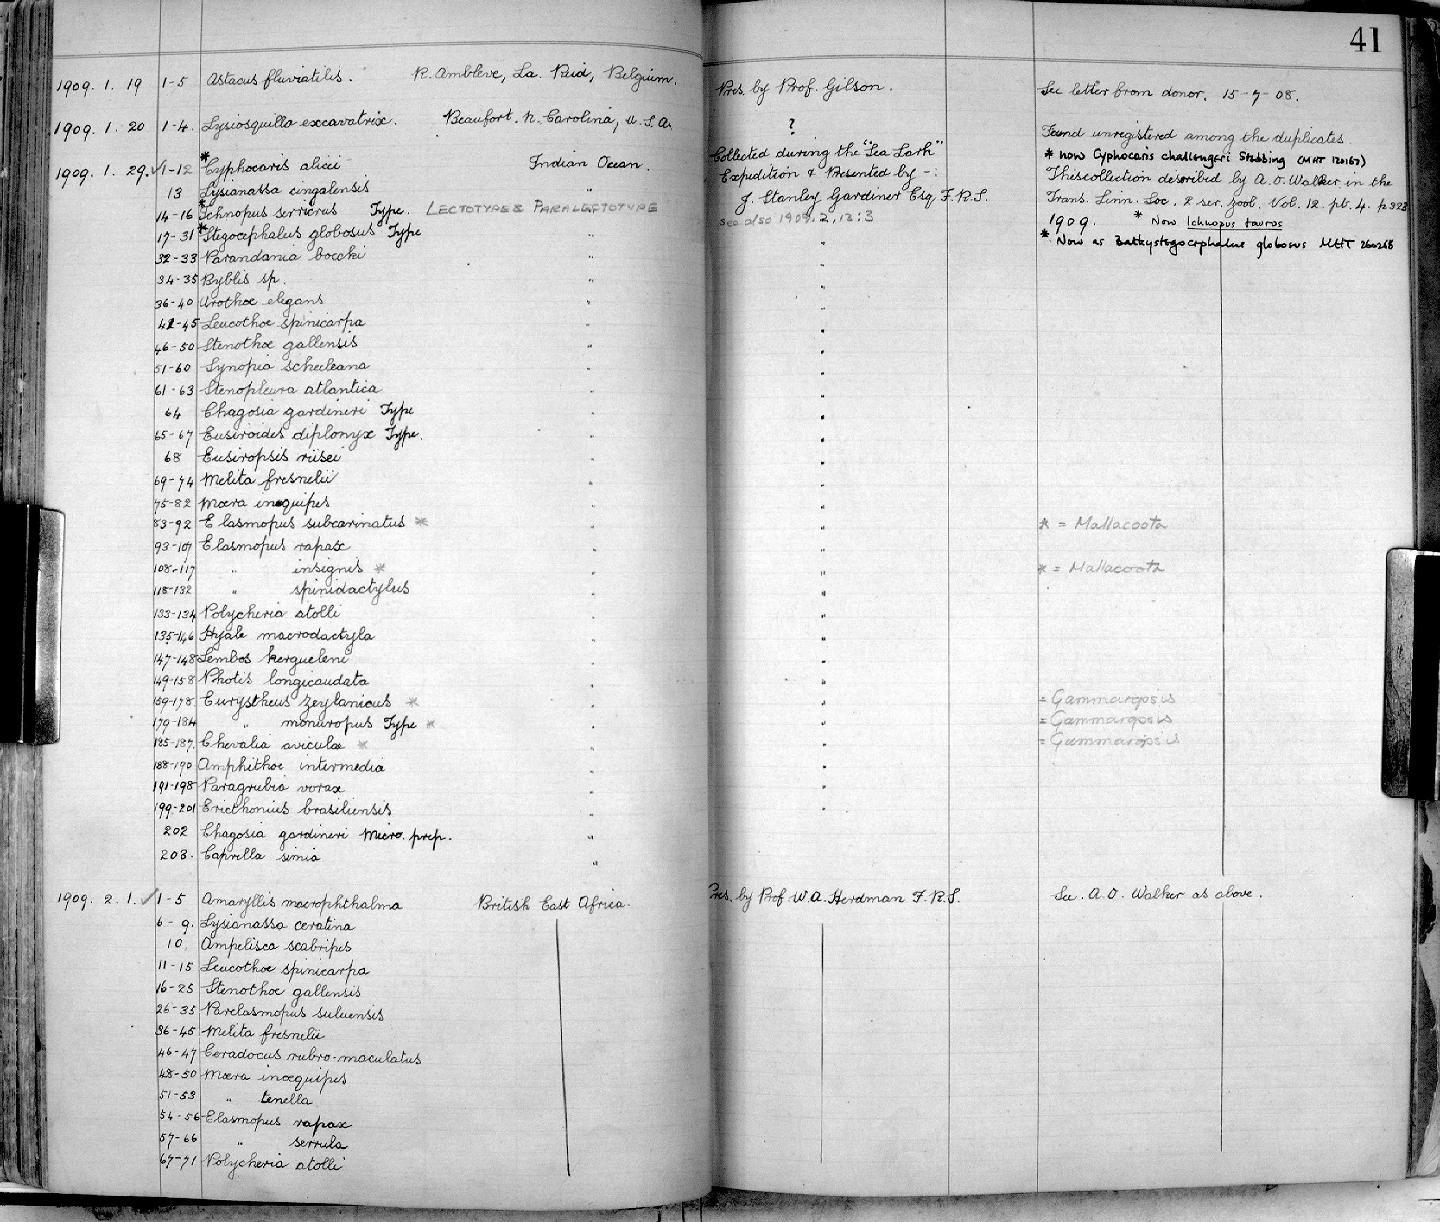 41
1909. 1. 19 1-5 Astacus fluviatilis. R. Ambleve, La. Reid, Belgium. Pres. by Prof. Gilson. See letter from donor. 15-7-08.
1909. 1. 20 1-4. Lysiosquilla excavatrix. Beaufort. N. Carolina, U.S.A. ? Found unregistered among the duplicates.
1909. 1. 29. ✓ 1-12 *Cyphocaris alicei Indian Ocean. Collected during the "Sea Lark" * now Cyphocaris challengeri Stebbing (MHT 120167)
13 Lysianassa cingalensis " Expedition & Presented by -: This collection described by A.O. Walker in the
14-16 *Ichnopus serricrus Type. LECTOTYPE & PARALECTOTYPE J. Stanley Gardiner Esq F.R.S. Trans. Linn. Soc., 2 ser. zool. Vol. 12. pt. 4. p 323
17-31 *Stegocephalus globosus Type " see also 1909. 2, 12: 3 1909. * Now Ichnopus taurus
32-33 Parandania boecki " " * Now as Bathystegocephalus globosus MHT
34-35 Byblis sp. " "
36-40 Urothoe elegans " "
41-45 Leucothoe spinicarpa " "
46-50 Stenothoe gallensis " "
51-60 Synopia scheeleana " "
61-63 Stenopleura atlantica " "
64 Chagosia gardineri Type " "
65-67 Eusiroides diplonyx Type. " "
68 Eusiropsis riisei " "
69-74 Melita fresnelii " "
75-82 Mæra inæquipes " "
83-92 Elasmopus subcarinatus * " " * = Mallacoota
93-107 Elasmopus rapax " "
108-117 " insignis * " " * = Mallacoota
118-132 " spinidactylus " "
133-134 Polycheria atolli " "
135-146 Hyale macrodactyla " "
147-148 Lembos kergueleni " "
149-158 Photis longicaudata " "
159-178 Eurystheus zeylanicus * " " = Gammaropsis
179-184 " monuropus Type * " " = Gammaropsis
185-187. Chevalia aviculæ * " " = Gammaropsis
188-190 Amphithoe intermedia " "
191-198 Paragrubia vorax " "
199-201 Ericthonius brasiliensis " "
202 Chagosia gardineri Micro. prep. "
203. Caprella simia "
1909. 2. 1. ✓ 1-5 Amaryllis macrophthalma British East Africa. Pres. by Prof W.A. Herdman F.R.S. See. A.O. Walker as above.
6-9. Lysianassa ceratina
10. Ampelisca scabripes
11-15 Leucothoe spinicarpa
16-25 Stenothoe gallensis
26-35 Parelasmopus suluensis
36-45 Melita fresnelii
46-47 Ceradocus rubro-maculatus
48-50 Mæra inæquipes
51-53 " tenella
54-56 Elasmopus rapax
57-66 " serrula
67-71 Polycheria atolli